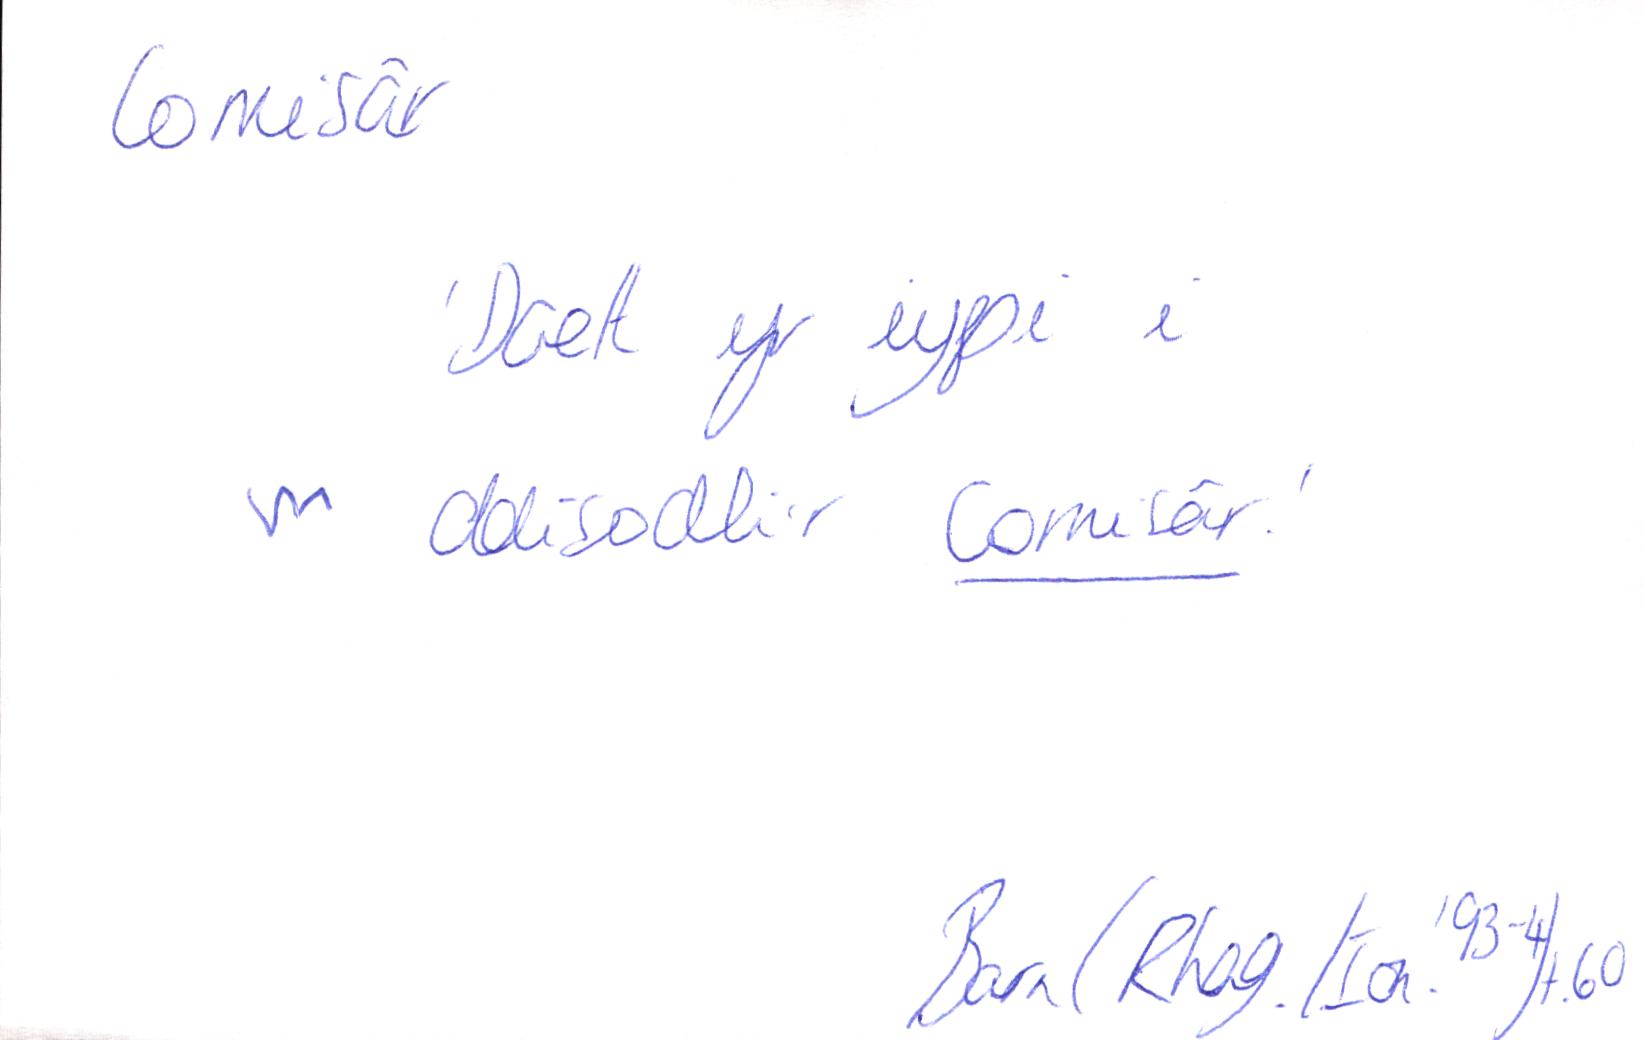 Comisâr
'Daeth yr iypi i
ddisodli'r Comisâr.'
Barn (Rhag./Ion. '93-4) t.60